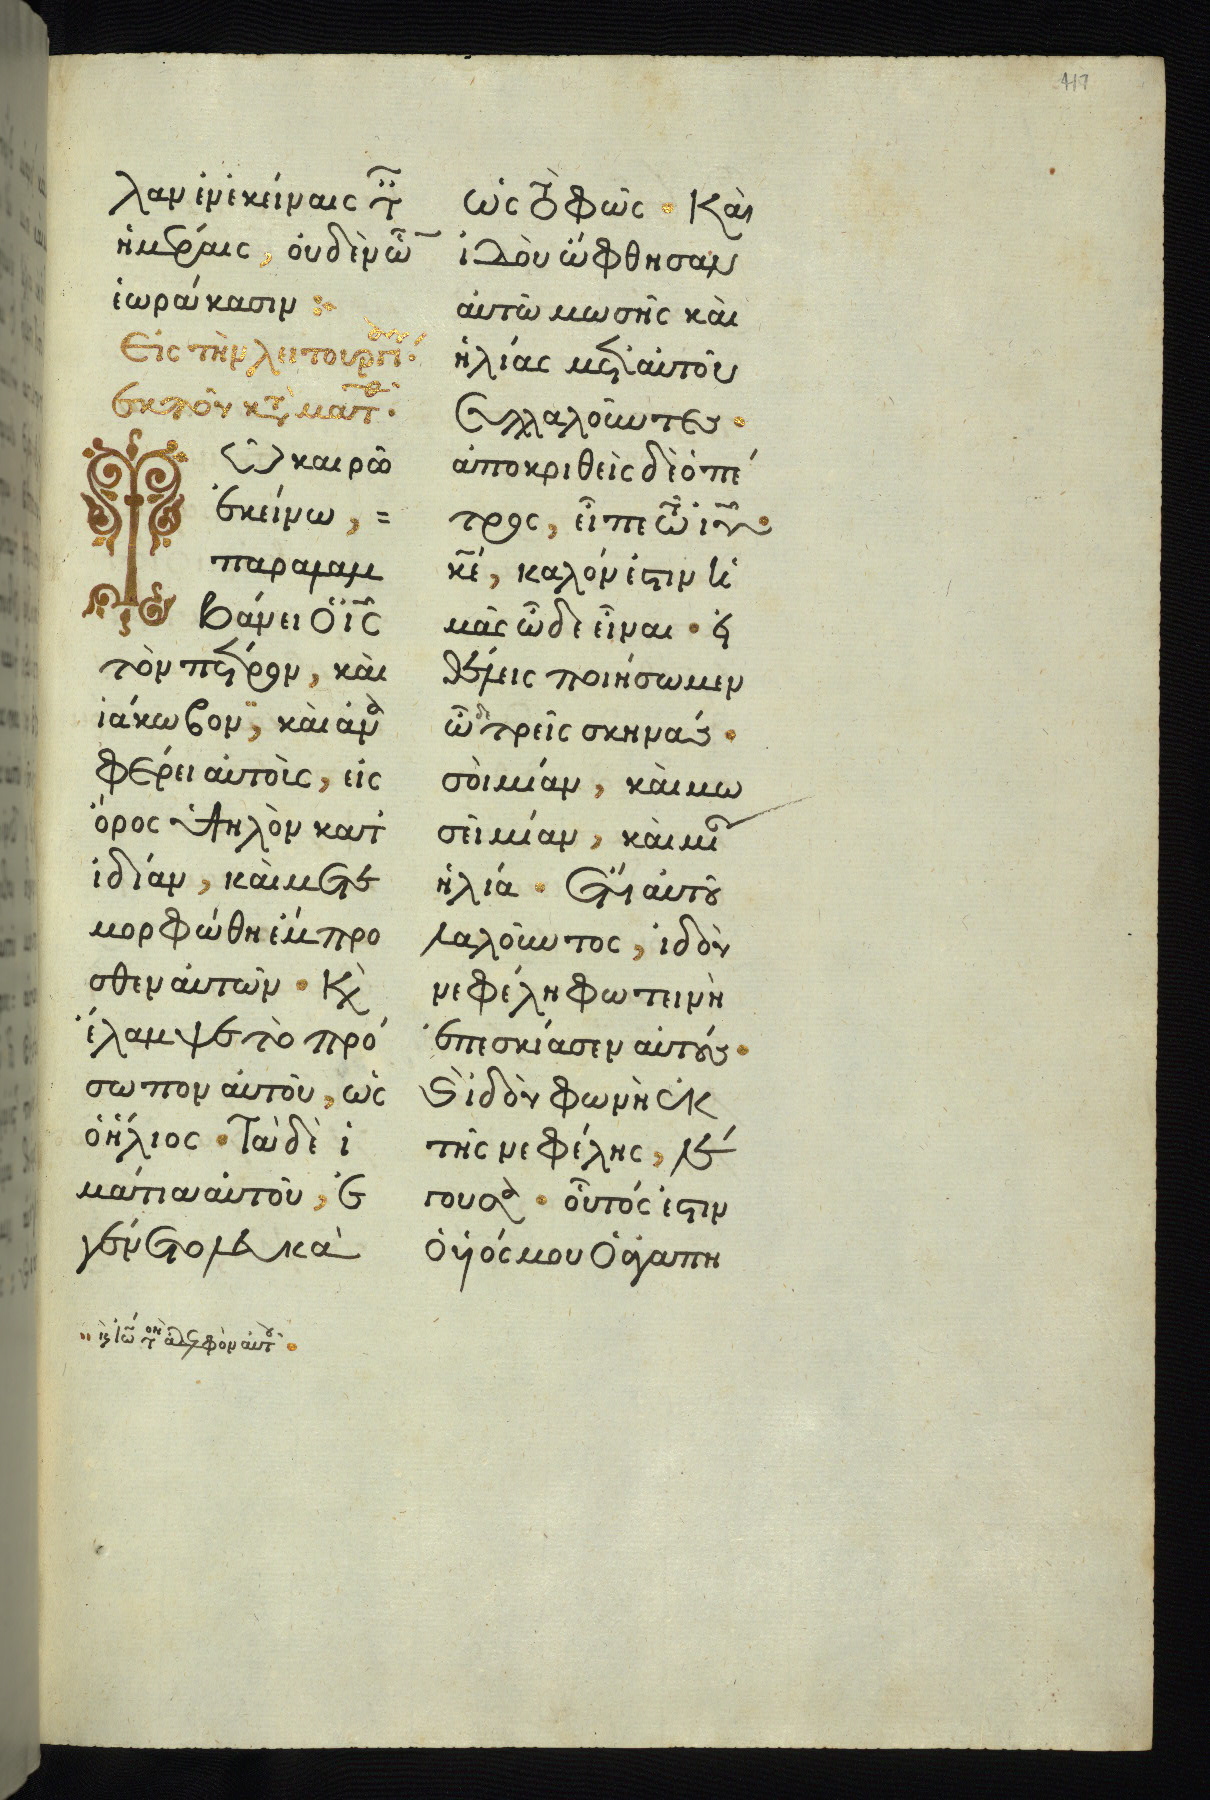 417
λαν ἐν ἐκείναις τ
ἡμέραις, οὐδὲν ὧ
ἑωράκασιν :
Εἰς τὴν λειτουργι
ἐκ τοῦ κτ ματθ.
Τῶ καιρῶ
ἐκείνω, =
παραλαμ
βάνει ὁ ις
τὸν πέτρον, καὶ
ἰάκωβον, καὶ ἀνα
φέρει αὐτοὺς, εἰς
ὄρος ὑψηλὸν κατ
ἰδίαν, καὶ μετε
μορφώθη ἔμπρο
σθεν αὐτῶν. Κὶ
ἔλαμψε τὸ πρό
σωπον αὐτοῦ, ὡς
ὁ ἥλιος. Τὰ δὲ ἱ
μάτια αὐτοῦ, ἐ
γένετο λευκὰ
ὡς τὸ φῶς. Καὶ
ἰδοὺ ὤφθησαν
αὐτῶ μωσῆς καὶ
ἠλίας μετ αὐτοῦ
συλλαλοῦντες.
ἀποκριθεὶς δὲ ὁ πέ
τρος, εἶπε τῶ ιυ
κε, καλόν ἐστιν ἡ
μᾶς ὧδε εἶναι. εἰ
θέλεις ποιήσωμεν
ὧδε τρεῖς σκηνάς.
σοὶ μίαν, καὶ μω
σεῖ μίαν, καὶ μι
ἠλία. ἔτι αὐτοῦ
λαλοῦντος, ἰδοὺ
νεφέλη φωτεινὴ
ἐπεσκίασεν αὐτούς.
Κ ἰδοὺ φωνὴ ἐκ
τῆς νεφέλης, λέ
γουσα. οὗτός ἐστιν
ὁ υἱός μου ὁ ἀγαπη
κ ἰω τὸν ἀδελφὸν αὐτοῦ.